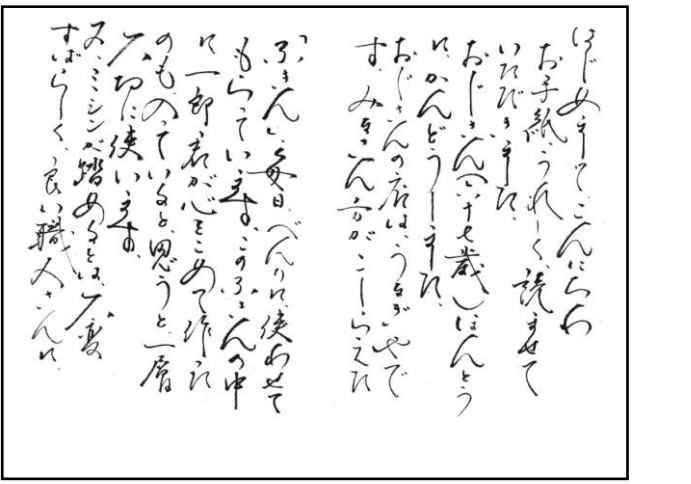 はじめまして、こんにちわ
お手紙、うれしく、読ませて
いただきました、
おじさん(十七歳)ほんとう
に、かんどうしました、
おじさんの店は、うなぎやで
す、みなさん方が、こしらえた
「ふきん」、毎日、べんりに、使わせて
もらっています、このふきんの中
に一郎君が心をこめて作った
のも、入っていると、思うと、一層
大切に使います、
又、ミシンが踏めるとは、大変
すばらしく、良い職人さんに、